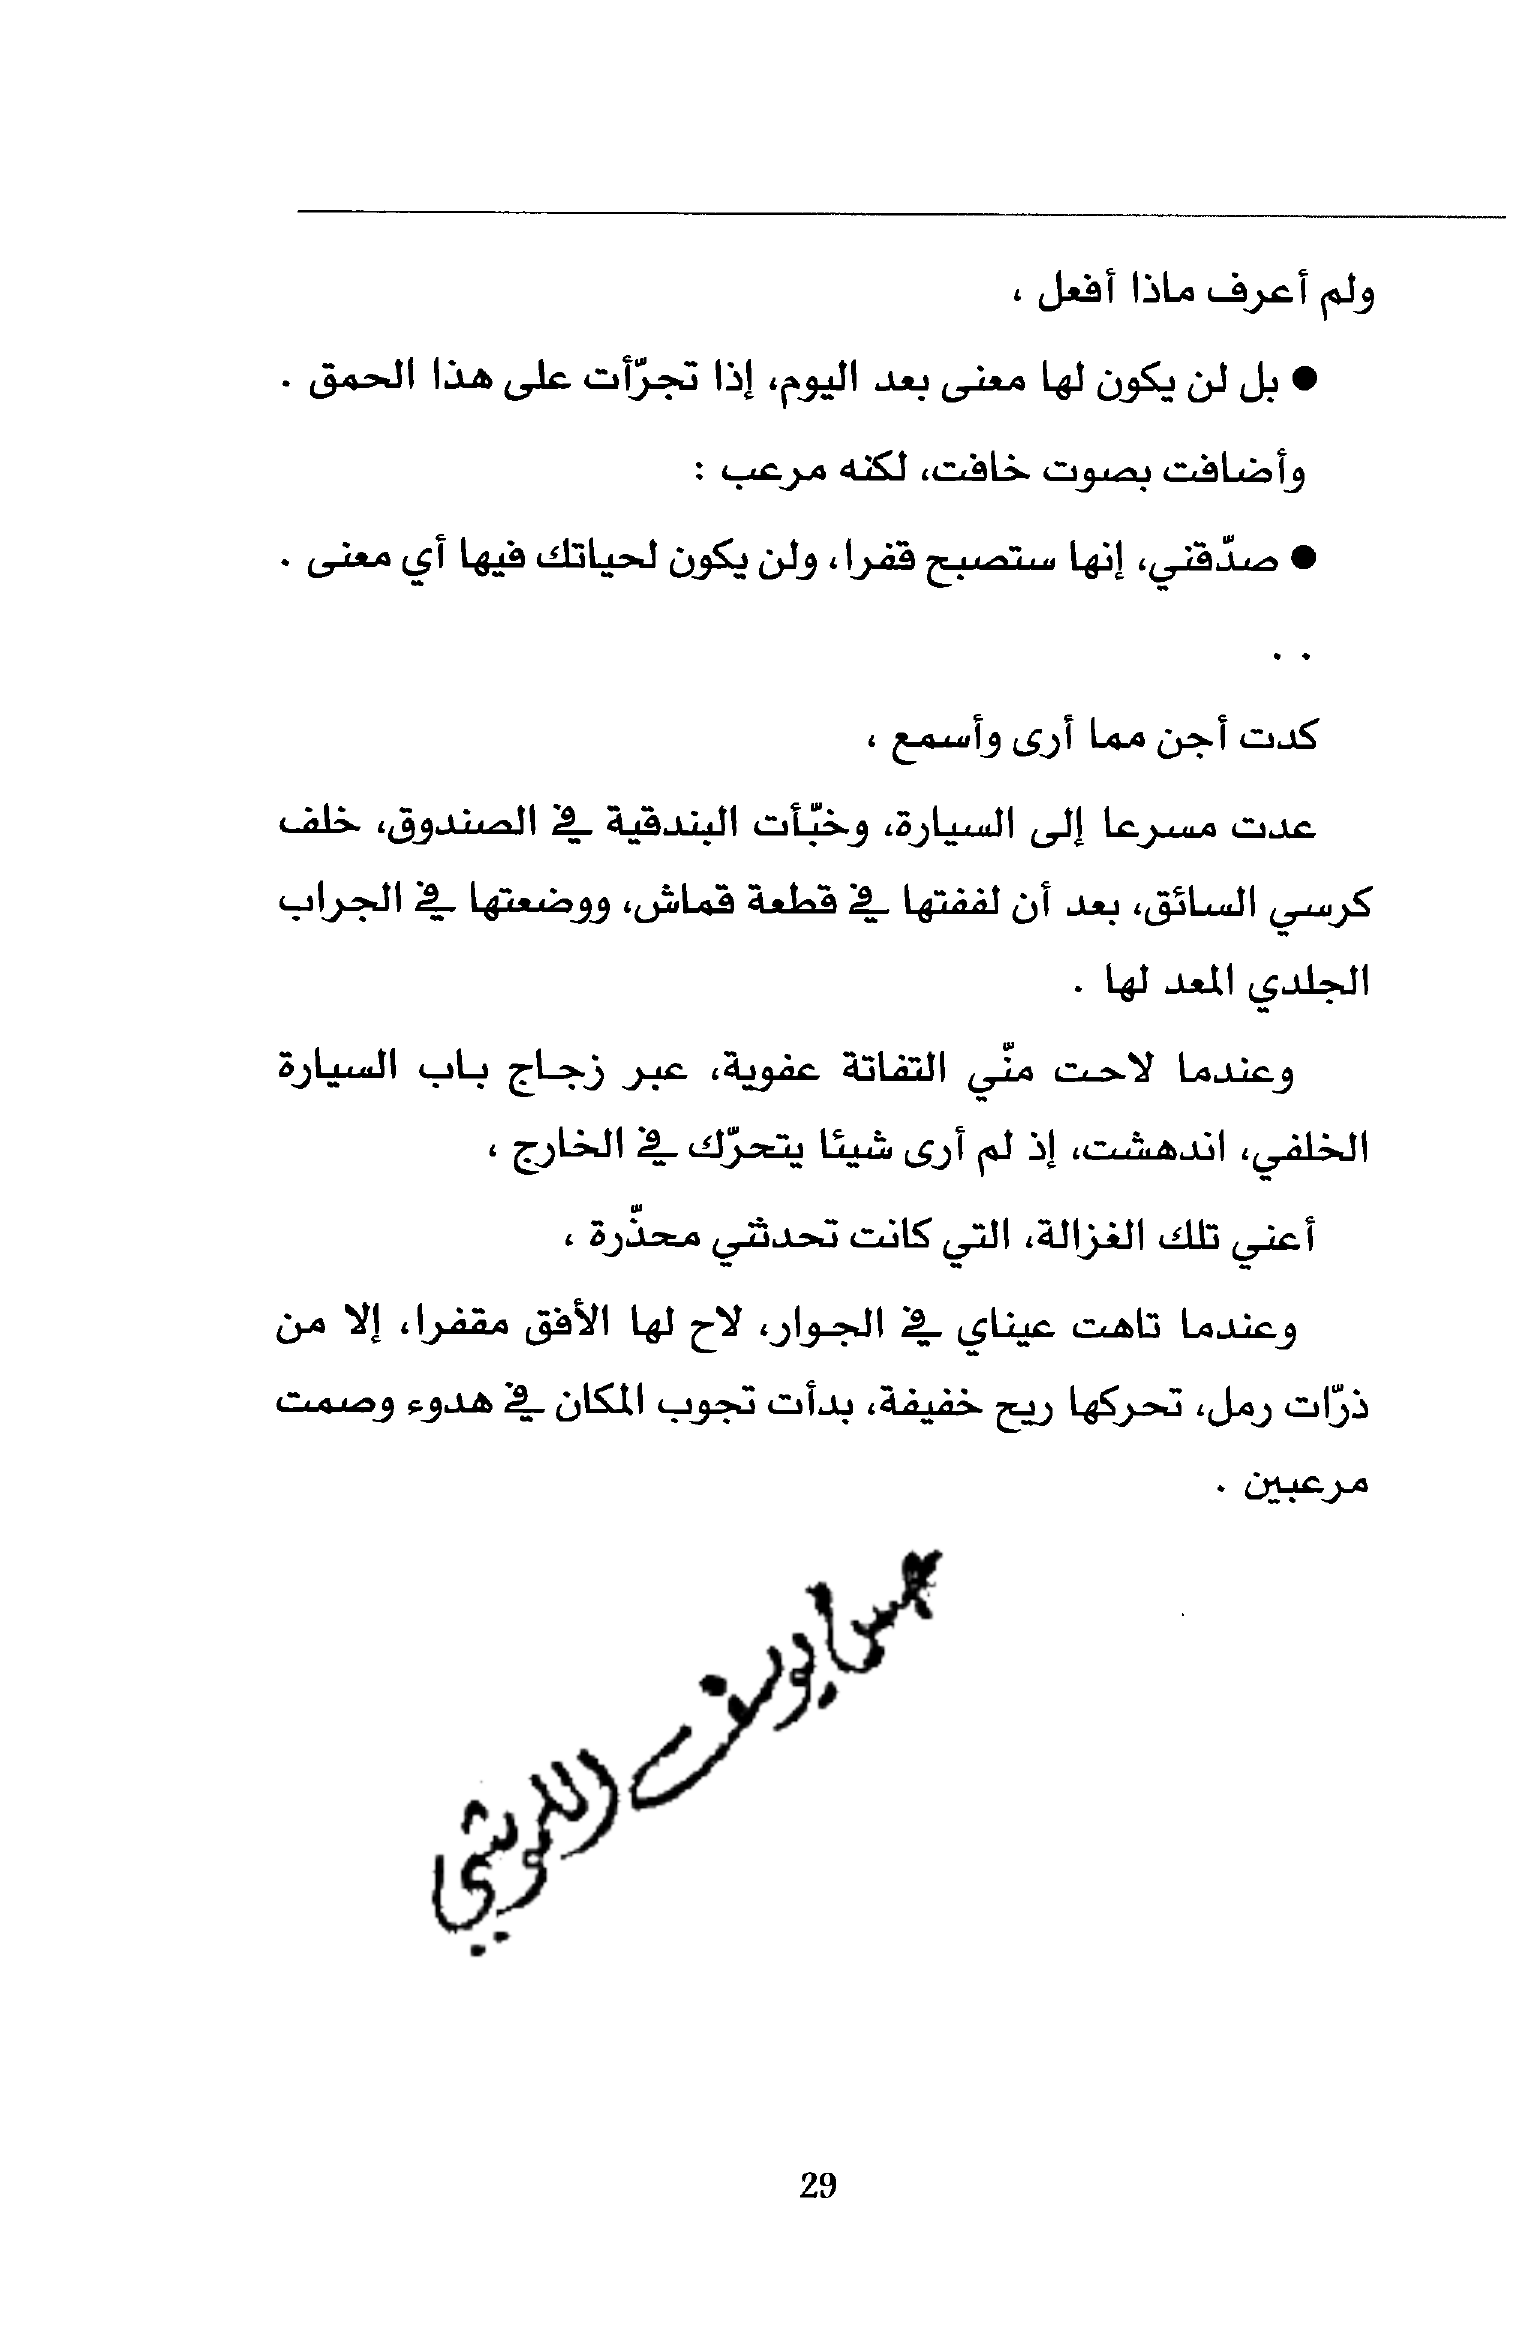 ولم أعرف ماذا أفعل ،
● بل لن يكون لها معنى بعد اليوم، إذا تجرّأت على هذا الحمق .
وأضافت بصوت خافت، لكنه مرعب :
● صدّقني، إنها ستصبح قفرا، ولن يكون لحياتك فيها أي معنى .
. .
كدت أجن مما أرى وأسمع ،
عدت مسرعا إلى السيارة، وخبّأت البندقية في الصندوق، خلف
كرسي السائق، بعد أن لففتها في قطعة قماش، ووضعتها في الجراب
الجلدي المعد لها .
وعندما لاحت منّي التفاتة عفوية، عبر زجاج باب السيارة
الخلفي، اندهشت، إذ لم أرى شيئا يتحرّك في الخارج ،
أعني تلك الغزالة، التي كانت تحدثني محذّرة ،
وعندما تاهت عيناي في الجوار، لاح لها الأفق مقفرا، إلا من
ذرّات رمل، تحركها ريح خفيفة، بدأت تجوب المكان في هدوء وصمت
مرعبين .
يوسف
29